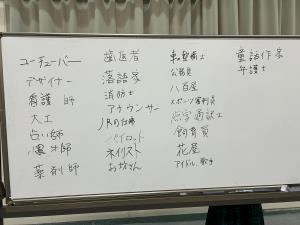 ユーチューバー
デザイナー
看護師
大工
占い師
漫才師
薬剤師
歯医者
落語家
消防士
アナウンサー
JRの仕事
パイロット
ネイリスト
お坊さん
車の整備士
公務員
八百屋
スポーツ審判員
点字通訳士
飼育員
花屋
アイドル、歌手
童話作家
弁護士